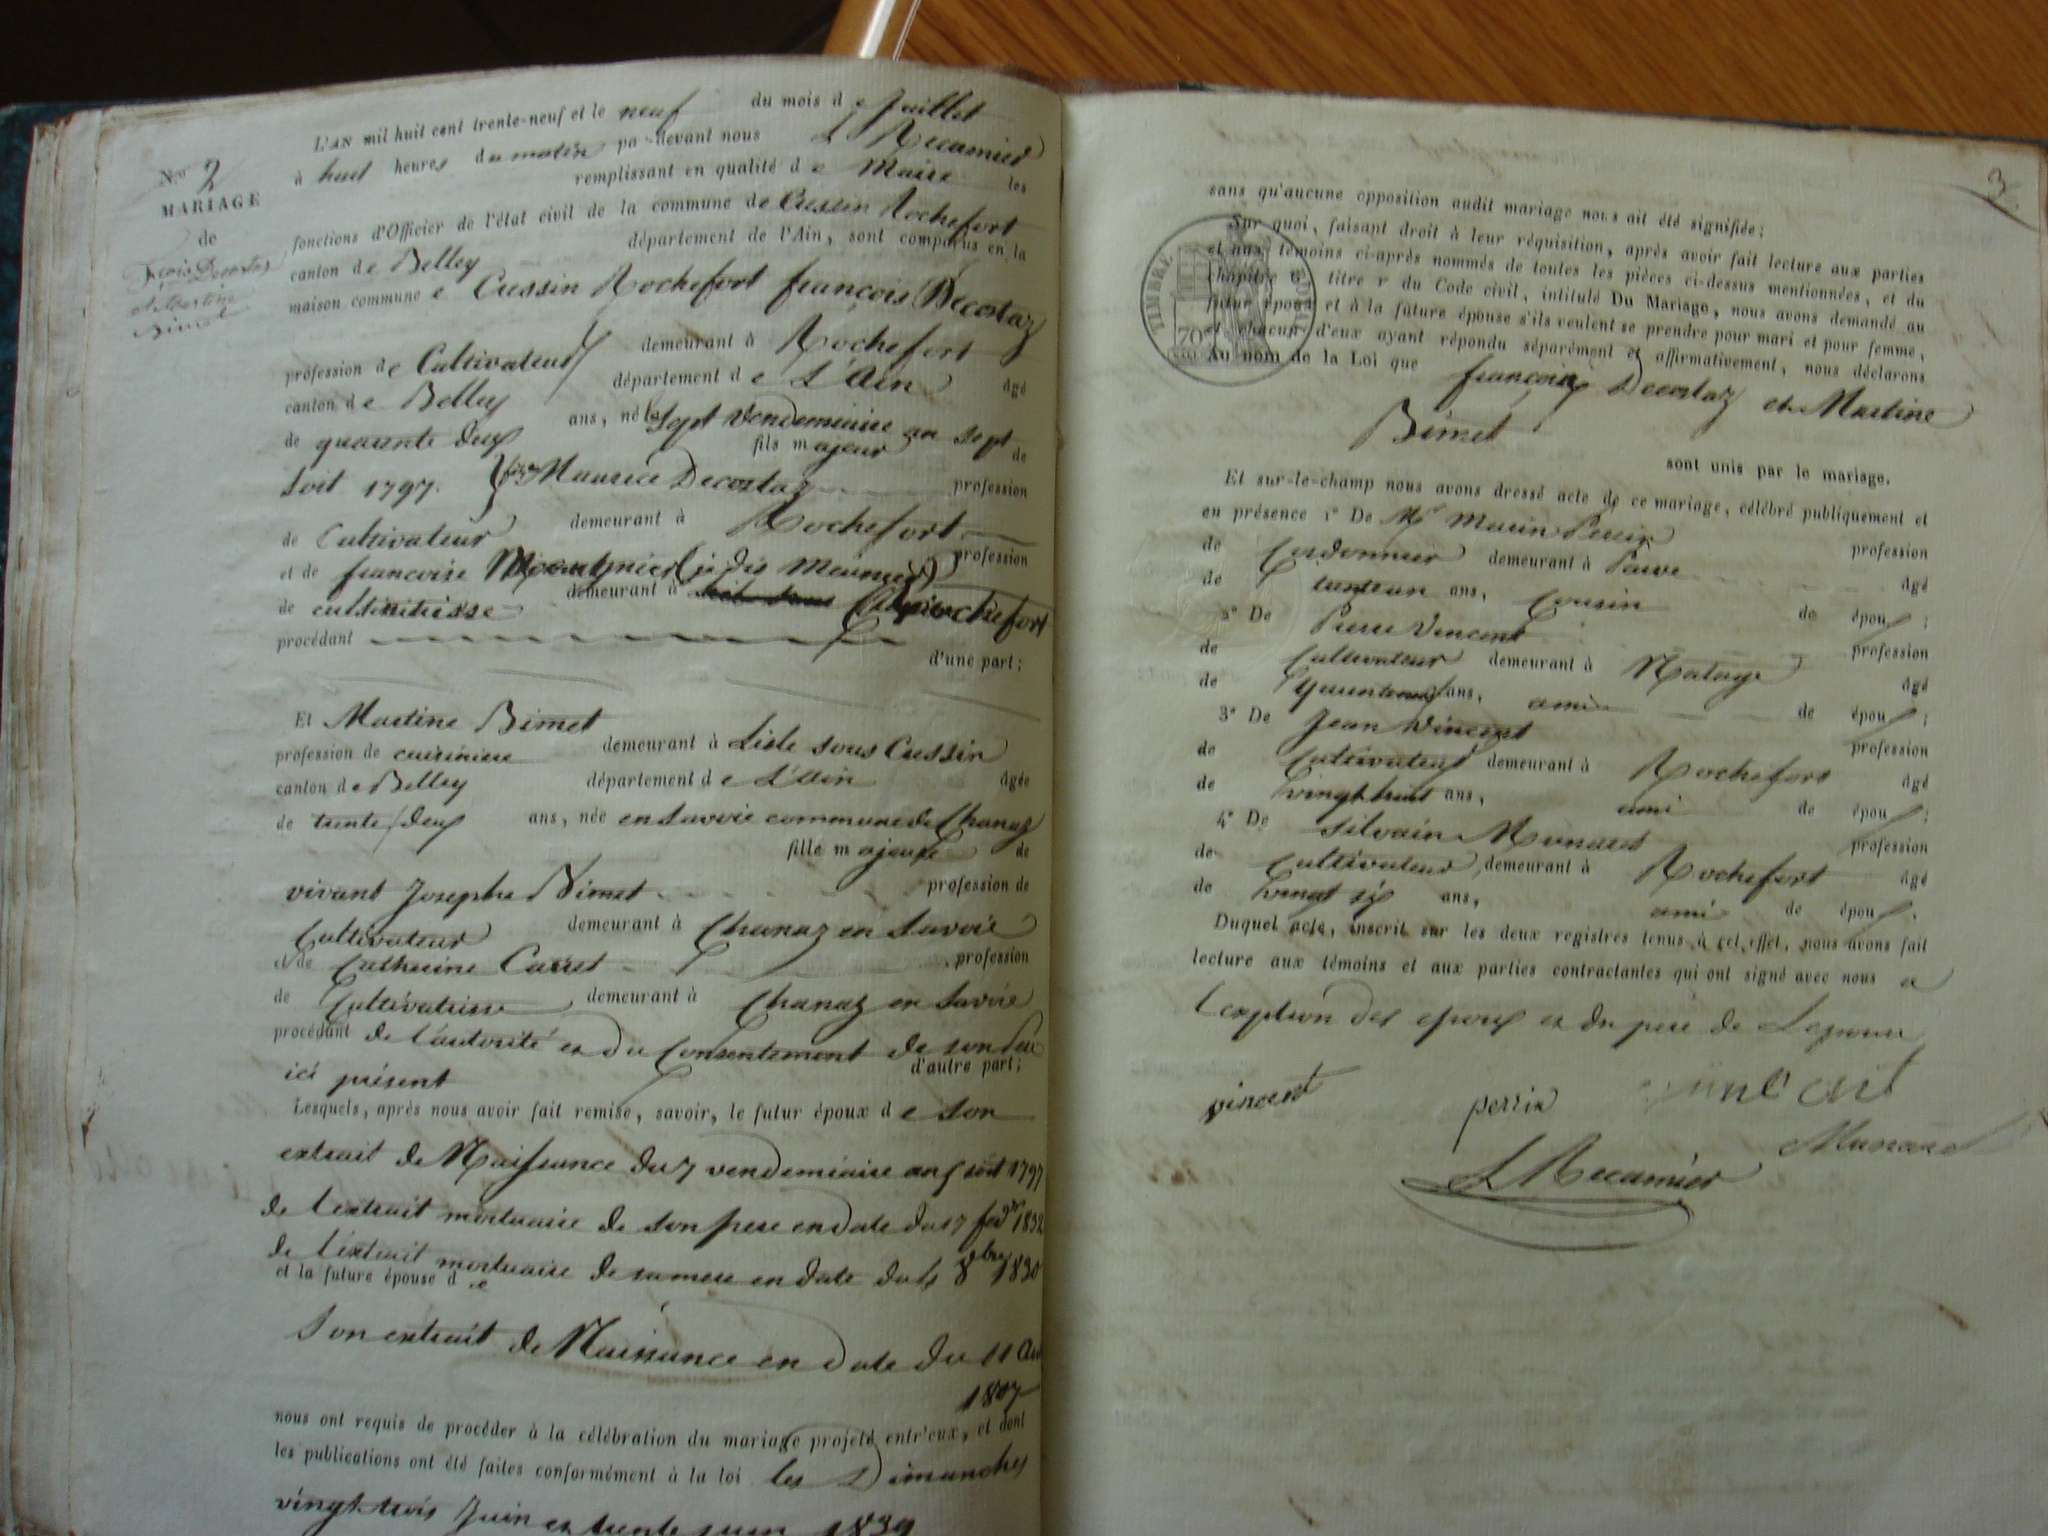 L'AN mil huit cent trente-neuf et le neuf du mois de Juillet
à huit heures du matin pa-devant nous L Recamier
remplissant en qualité de Maire les
fonctions d'Officier de l'état civil de la commune de Cussin Rochefort
canton de Belley département de l'Ain, sont comparus en la
maison commune e Cussin Rochefort françois Decostaz
profession de Cultivateur demeurant à Rochefort
canton de Belley département de L'Ain âgé
de quarante deux ans, né le sept vendemiaire an sept
fils majeur de
soit 1797. Maurice Decostaz profession
de Cultivateur demeurant à Rochefort
et de francoise (je dis Meunier) profession
de cultivatrisse demeurant à Rochefort
procédant
d'une part;
Et Martine Bimet
profession de cuisiniere demeurant à Lisle sous Cussin
canton de Belley département de L'Ain âgée
de trente deux ans, née en Savoie commune de Chanaz
fille majeure de
vivant Josephe Bimet profession de
Cultivateur demeurant à Chanaz en Savoie
et de Catherine Carret profession
de Cultivatrisse demeurant à Chanaz en Savoie
procédant de l'autorité et du Consentement de son Pere
d'autre part;
ici présent
Lesquels, après nous avoir fait remise, savoir, le futur époux de son
extrait de Naissance du 7 vendemiaire an soit 1797
de l'extrait mortuaire de son pere en date du 17 1832
de l'extrait mortuaire de sa mere en date du 8bre 1830
et la future épouse de
son extrait de Naissance en date du 11
1807
nous ont requis de procéder à la célébration du mariage projeté entr'eux, et dont
les publications ont été faites conformément à la loi les Dimanches
vingt trois Juin et trente juin 1839
No 2
MARIAGE
de
Fçois Decostaz
et Martine
Bimet
3
sans qu'aucune opposition audit mariage nous ait été signifiée;
Sur quoi, faisant droit à leur réquisition, après avoir fait lecture aux parties
et aux témoins ci-après nommés de toutes les pièces ci-dessus mentionnées, et du
chapitre titre v du Code civil, intitulé Du Mariage, nous avons demandé au
futur époux et à la future épouse s'ils veulent se prendre pour mari et pour femme,
et chacun d'eux ayant répondu séparément et affirmativement, nous déclarons
Au nom de la Loi que françois Decostaz et Martine
Bimet
sont unis par le mariage.
TIMBRE ROYAL
70
Et sur-le-champ nous avons dressé acte de ce mariage, célébré publiquement et
en présence 1° De Mr Marin Perrin profession
de Cordonnier demeurant à âgé
de ans, Cousin de époux;
2° De Pierre Vincent profession
de Cultivateur demeurant à âgé
de ans, ami de époux;
3° De Jean Vincent profession
de Cultivateur demeurant à Rochefort âgé
de vingt huit ans, ami de époux;
4° De Silvain Munaret profession
de Cultivateur demeurant à Rochefort âgé
de vingt six ans, ami de époux.
Duquel acte, inscrit sur les deux registres tenus à cet effet, nous avons fait
lecture aux témoins et aux parties contractantes qui ont signé avec nous a
lexeption des epoux et du pere de Lepouse
vincent perrin
Munaret
L Recamier